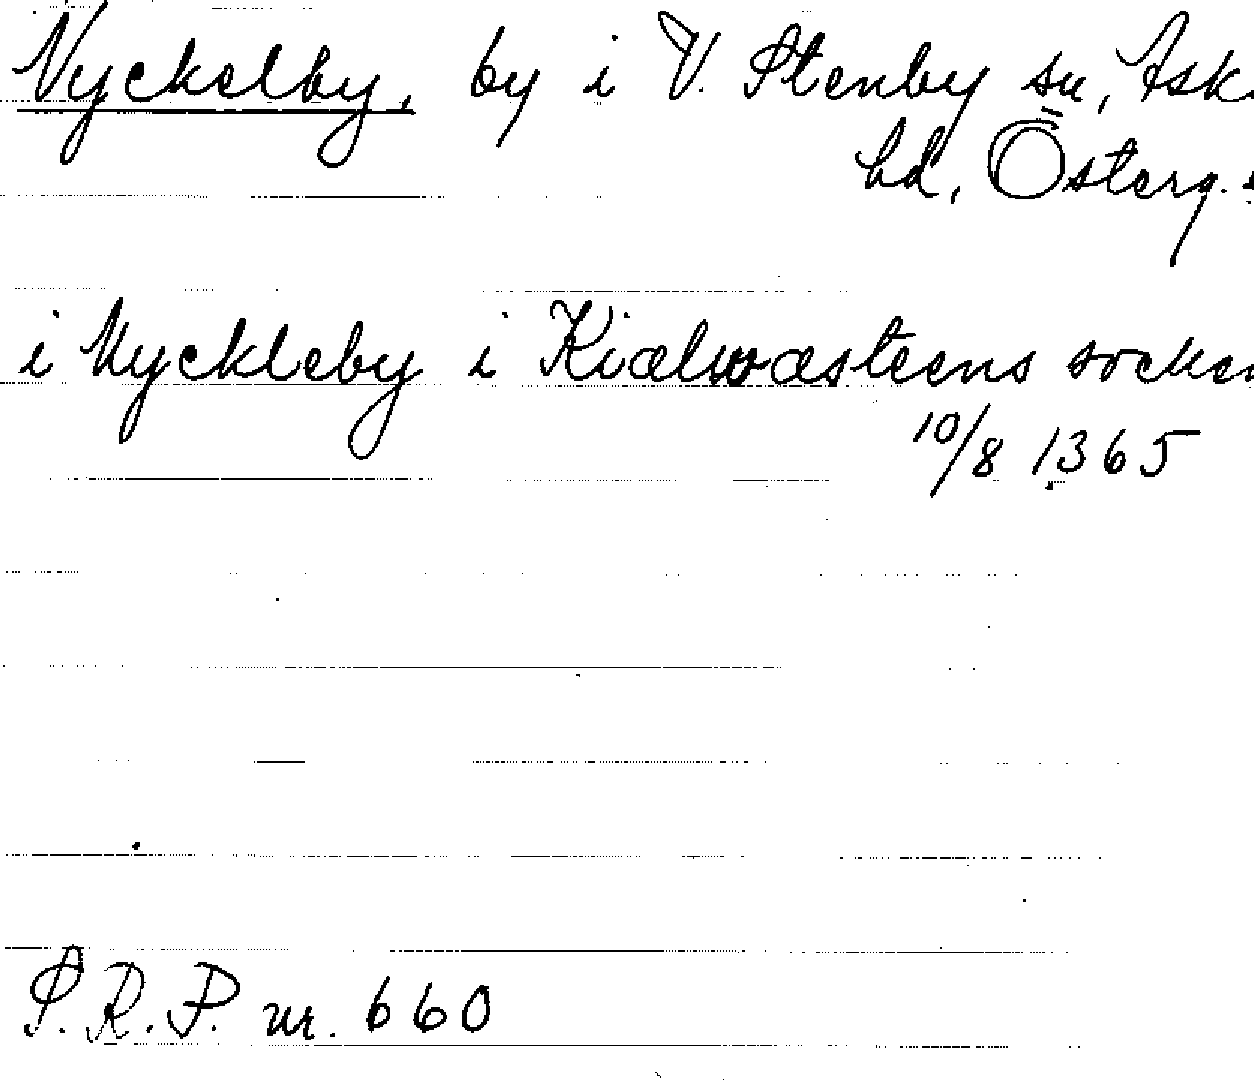 Nyckelby, by i V. Stenby sn, Ask.
hd, Österg.
i Nyckleby i Kiælwæsteens socken
10/8 1365
S.R.P. nr. 660